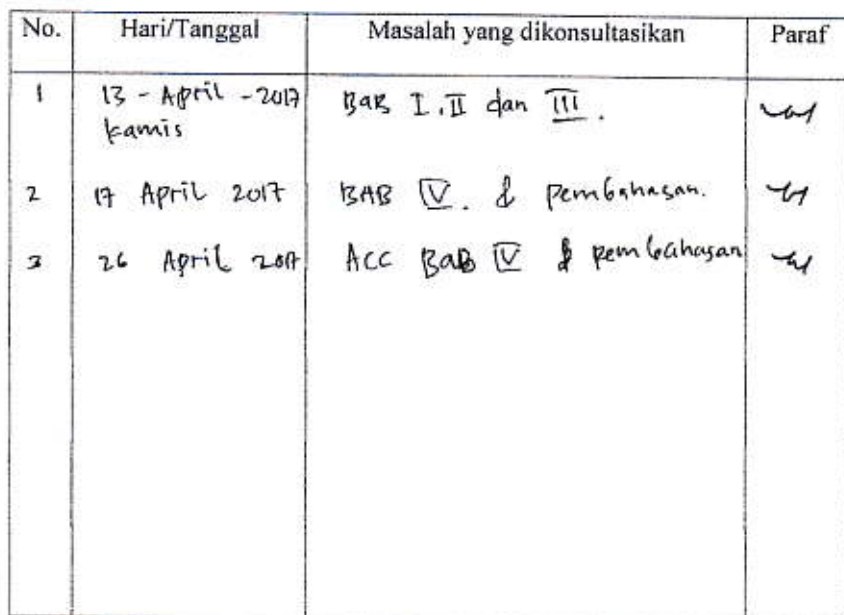 No. Hari/Tanggal Masalah yang dikonsultasikan Paraf
1 13 - April - 2017 BAB I, II dan III.
kamis
2 17 April 2017 BAB IV. & pembahasan.
3 26 April 2017 ACC BAB IV & pembahasan